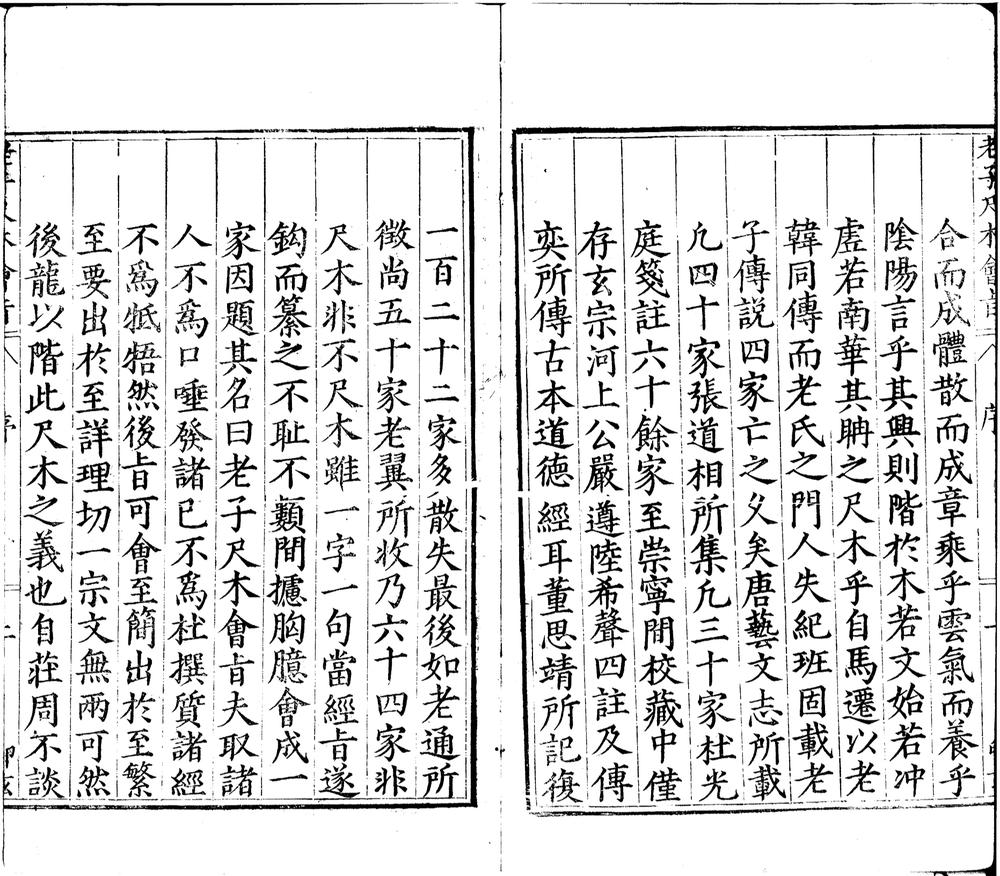 老子尺木會旨
序
合而成體散而成章乘乎雲氣而養乎
陰陽言乎其興則階於木若文始若冲
虗若南華其聃之尺木乎自馬遷以老
韓同傳而老氏之門人失紀班固載老
子傳説四家亡之久矣唐藝文志所載
凢四十家張道相所集凢三十家杜光
庭箋註六十餘家至崇寧間校藏中僅
存玄宗河上公嚴遵陸希聲四註及傳
奕所傳古本道德經耳董思靖所記復
一百二十二家多散失最後如老通所
徵尚五十家老翼所收乃六十四家非
尺木非不尺木雖一字一句當經旨遂
鈎而纂之不耻不纇間攄胸臆會成一
家因題其名曰老子尺木會旨夫取諸
人不爲口唾發諸已不爲杜撰質諸經
不爲牴牾然後旨可會至簡出於至繁
至要出於至詳理切一宗文無兩可然
後龍以階此尺木之義也自莊周不談
序
二